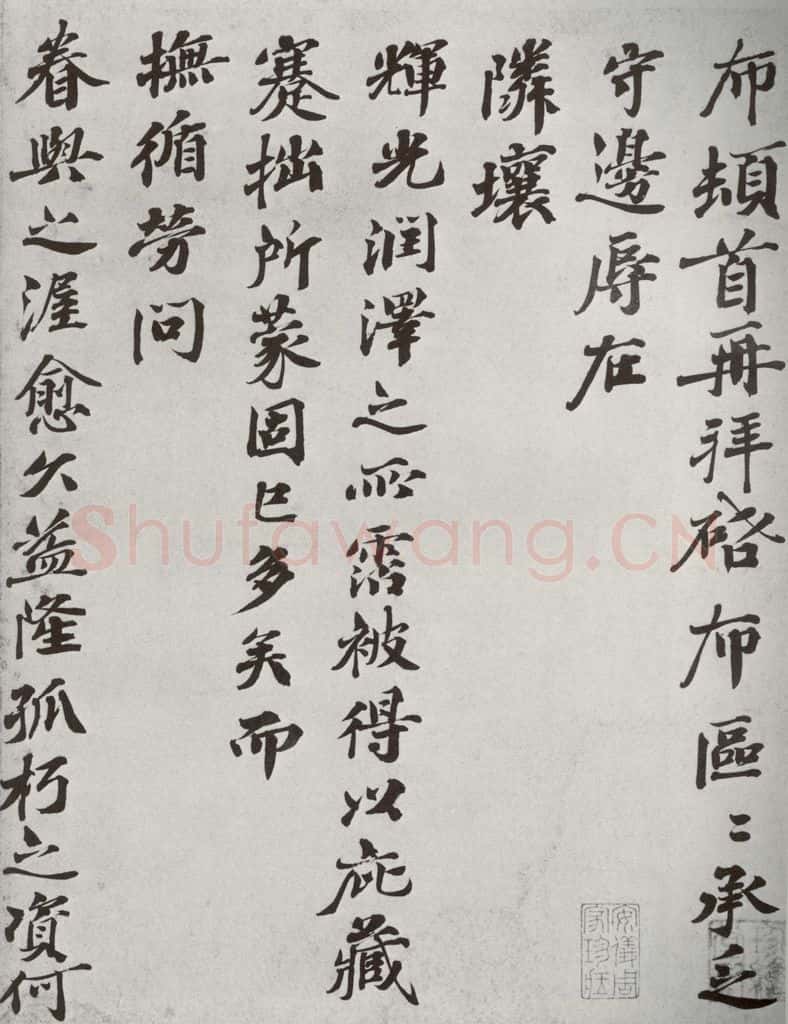 布頓首再拜啓布區〻承乏
守邊辱在
隣壤
輝光潤澤之所霑被得以庇藏
蹇拙所蒙固已多矣而
撫循勞問
眷與之渥愈久益隆孤朽之資何
Shufawang.CN
安儀周
家珍藏